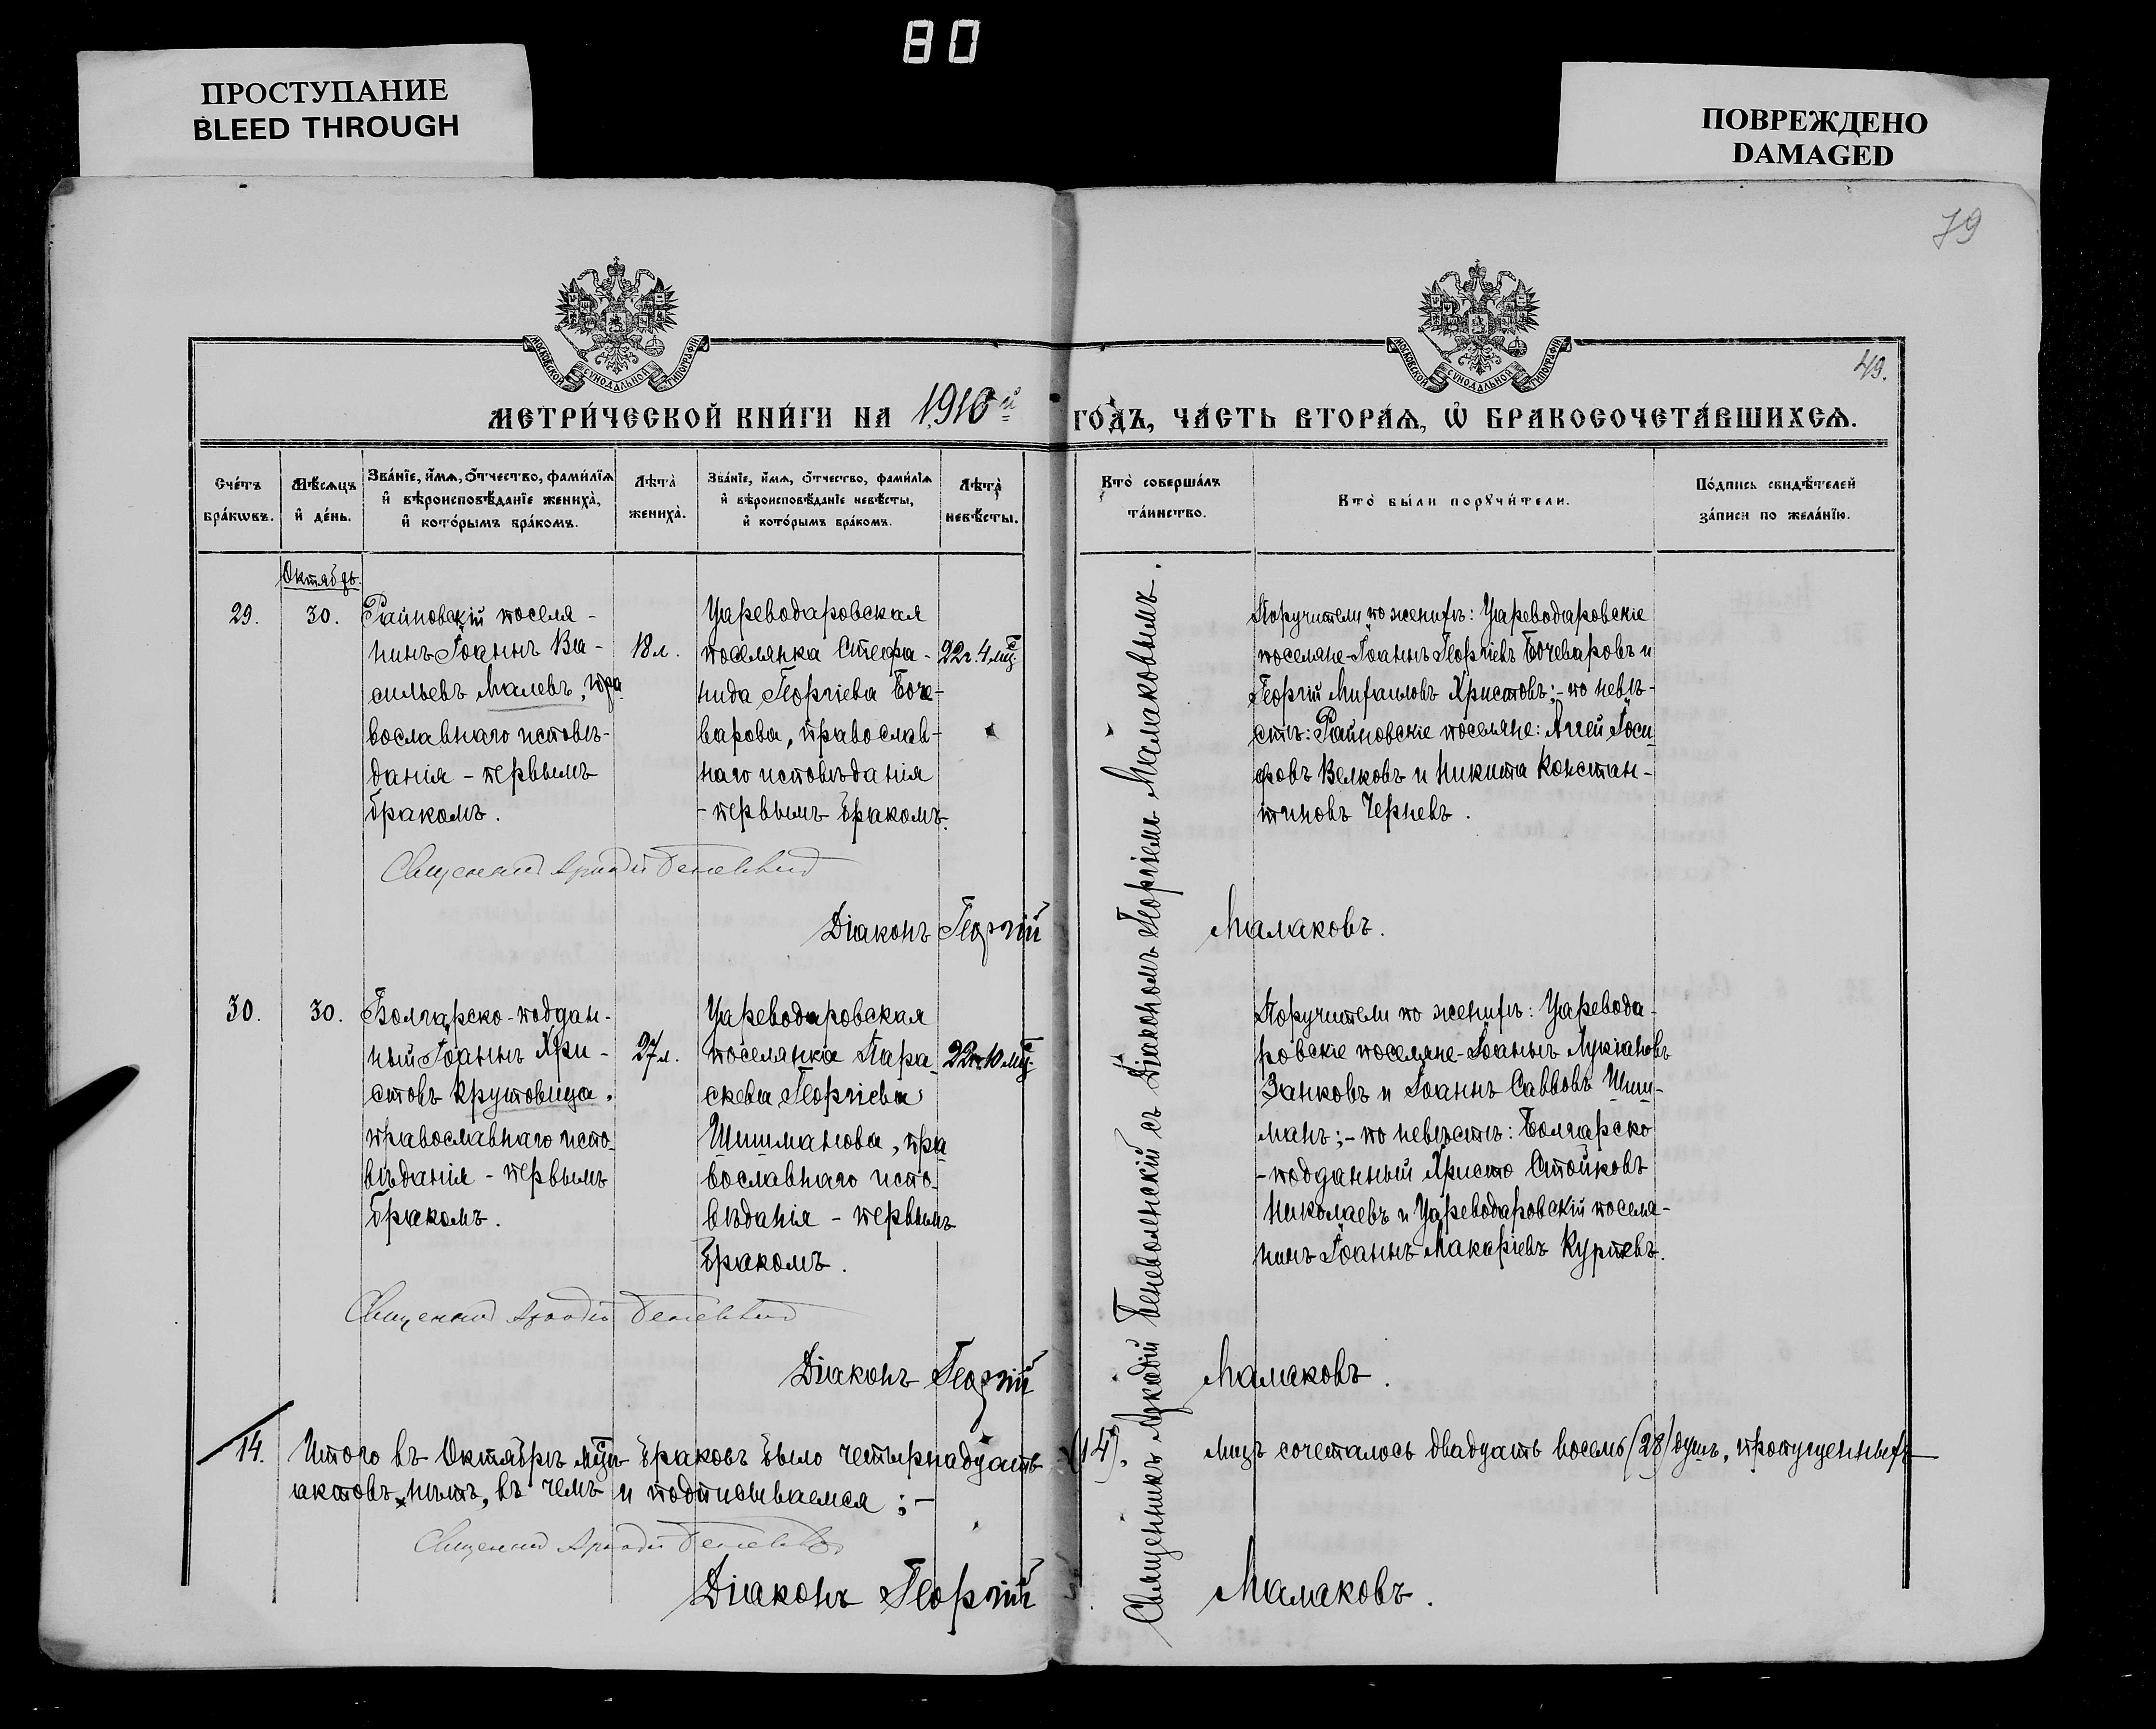 80
ПРОСТУПАНИЕ
BLEED THROUGH
ПОВРЕЖДЕНО
DAMAGED
79
МОСКОВСКОЙ СѴНОДАЛЬНОЙ ТИПОГРАФІИ
МОСКОВСКОЙ СѴНОДАЛЬНОЙ ТИПОГРАФІИ
49.
МЕТРИ́ЧЕСКОЙ КНИ́ГИ НА 1910й ГО́ДЪ, ЧА́СТЬ ВТОРА́Ѧ, Ѡ҆ БРАКОСОЧЕТА́ВШИХСѦ.
Сче́тъ
бра́кѡвъ.
Мѣ́сѧцъ
и҆ де́нь.
Зва́нїе, и҆́мѧ, ѻ҆́тчество, фами́лїѧ
и҆ вѣроисповѣ́данїе жениха̀,
и҆ кото́рымъ бра́комъ.
Лѣ́та̀
жениха̀.
Зва́нїе, и҆́мѧ, ѻ҆́тчество, фами́лїѧ
и҆ вѣроисповѣ́данїе невѣ́сты,
и҆ кото́рымъ бра́комъ.
Лѣ́та̀
невѣ́сты.
Кто̀ соверша́лъ
та́инство.
Кто̀ бы́ли порꙋчи́тели.
По́дпись свидѣ́телей
за́писи по жела́нїю.
Октябрь.
29.
30.
Райновскій поселя-
нинъ Іоаннъ Ва-
сильевъ Малевъ, пра-
вославнаго исповѣ-
данія - первымъ
бракомъ.
18 л.
Цареводаровская
поселянка Стефа-
нида Георгіева Боче-
варова, православ-
наго исповѣданія
- первымъ бракомъ.
22 г. 4 мц.
Священникъ Аркадій Беневоленскій съ Діакономъ Георгіемъ Малаковымъ.
Поручители по женихѣ: Цареводаровскіе
поселяне - Іоаннъ Георгіевъ Бочеваровъ и
Георгій Михаиловъ Христовъ; - по невѣ-
стѣ: Райновскіе поселяне: Аггей Іоси-
фовъ Велковъ и Никита Констан-
тиновъ Чернев.
Священникъ Аркадій
Діаконъ Георгій Малаковъ.
30.
30.
Болгарско-поддан-
ный Іоаннъ Хри-
стовъ Крутовица,
православнаго испо-
вѣданія - первымъ
бракомъ.
27 л.
Цареводаровская
поселянка Пара-
скева Георгіева
Шишманова, пра-
вославнаго испо-
вѣданія - первымъ
бракомъ.
22 г. 10 мц.
Поручители по женихѣ: Царевода-
ровскіе поселяне - Іоаннъ Лукіановъ
Занковъ и Іоаннъ Савовъ Шиш-
манъ; - по невѣстѣ: Болгарско
- подданный Христо Стойковъ
Николаевъ и Цареводаровскій поселя-
нинъ Іоаннъ Макаріевъ Курневъ.
Священникъ Аркадій
Діаконъ Георгій Малаковъ.
14. Итого въ Октябрѣ мцѣ браковъ было четырнадцать (14), лицъ сочеталось двадцать восемь (28) душъ, пропущенныхъ
актовъ нѣтъ, въ чемъ и подписываемся; -
Священникъ Аркадій
Діаконъ Георгій Малаковъ.